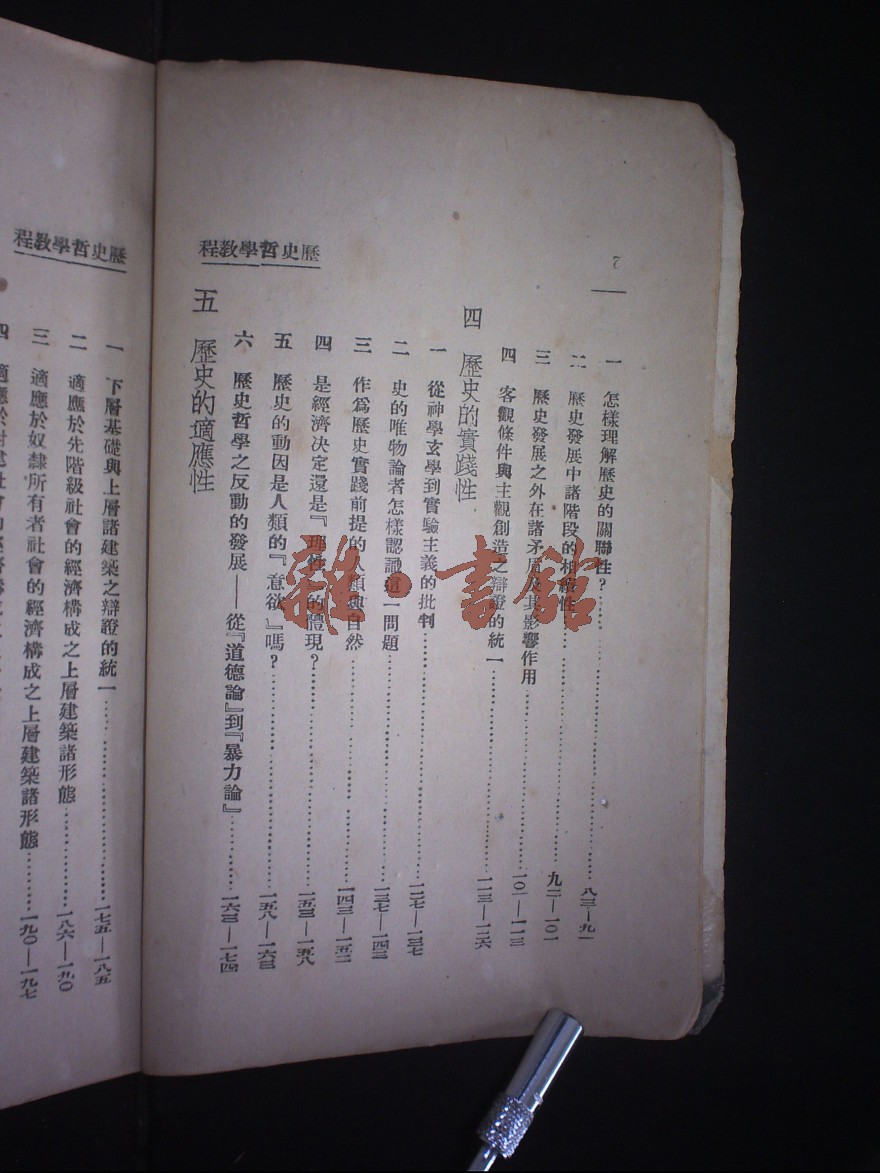 7
歷史哲學教程
一 怎樣理解歷史的關聯性?……八三—九一
二 歷史發展中諸階段的相續性……九二—一〇一
三 歷史發展之外在諸矛盾及其影響作用……一〇一—一一三
四 客觀條件與主觀創造之辯證的統一……一一三—一二六
四 歷史的實踐性
一 從神學玄學到實驗主義的批判……一二七—一三七
二 史的唯物論者怎樣認識這一問題……一三七—一四三
三 作爲歷史實踐前提的人類與自然……一四三—一五二
四 是經濟決定還是『理性』的體現?……一五三—一五八
五 歷史的動因是人類的『意欲』嗎?……一五八—一六三
六 歷史哲學之反動的發展——從『道德論』到『暴力論』……一六三—一七四
五 歷史的適應性
歷史哲學教程
一 下層基礎與上層諸建築之辯證的統一……一七五—一八五
二 適應於先階級社會的經濟構成之上層建築諸形態……一八六—一九〇
三 適應於奴隸所有者社會的經濟構成之上層建築諸形態……一九〇—一九七
雜·書館